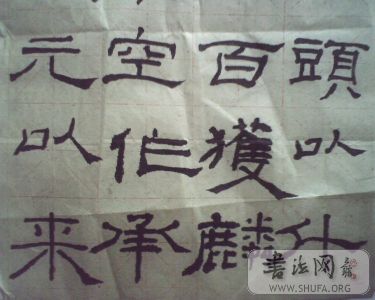 頭以什
百獲麟
空作承
元以来
书法网
WWW.SHUFA.ORG